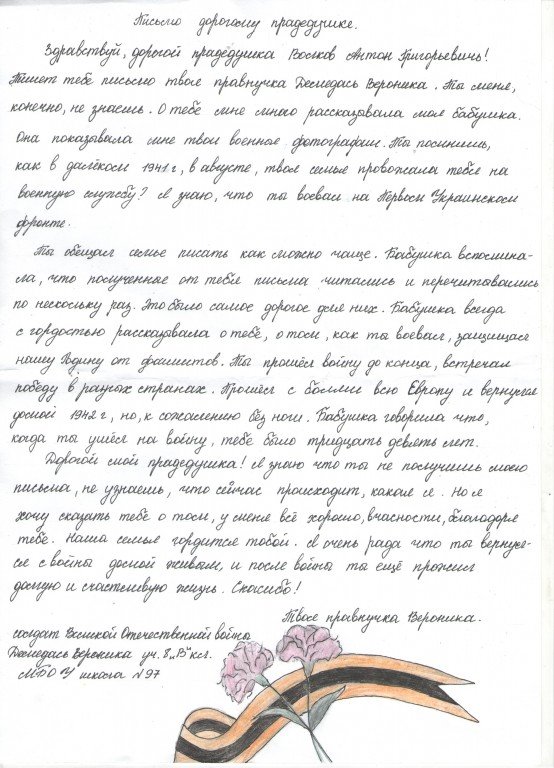 Письмо дорогому прадедушке.
Здравствуй, дорогой прадедушка Волков Антон Григорьевичь!
Пишет тебе письмо твоя правнучка Демедась Вероника. Ты меня,
конечно, не знаешь. О тебе мне много рассказывала моя бабушка.
Она показывала мне твои военные фотографии. Ты помнишь,
как в далёком 1941 г, в августе, твоя семья провожала тебя на
военную службу? Я знаю, что ты воевал на Первом Украинском
фронте.
Ты обещал семье писать как можно чаще. Бабушка вспомина-
ла, что полученные от тебя письма читались и перечитывались
по нескольку раз. Это было самое дорогое для них. Бабушка всегда
с гордостью рассказывала о тебе, о том, как ты воевал, защищая
нашу Родину от фашистов. Ты прошёл войну до конца, встречал
победу в разных странах. Прошёл с боями всю Европу и вернулся
домой 1942 г, но, к сожалению без ноги. Бабушка говорила что,
когда ты ушёл на войну, тебе было тридцать девять лет.
Дорогой мой прадедушка! Я знаю что ты не получишь моего
письма, не узнаешь, что сейчас происходит, какая я. Но я
хочу сказать тебе о том, у меня всё хорошо, вчасности, благодаря
тебе. Наша семья гордится тобой. Я очень рада что ты вернул-
ся с войны домой живым, и после войны ты ещё прожил
долгую и счастливую жизнь. Спасибо!
Твоя правнучка Вероника.
солдат Великой Отечественной войны
Демедась Вероника уч. 8 „В" кл.
МБОУ школа №97